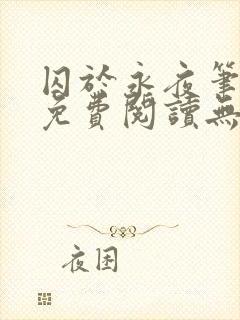 囚於永夜筆
免費閱讀無
夜困